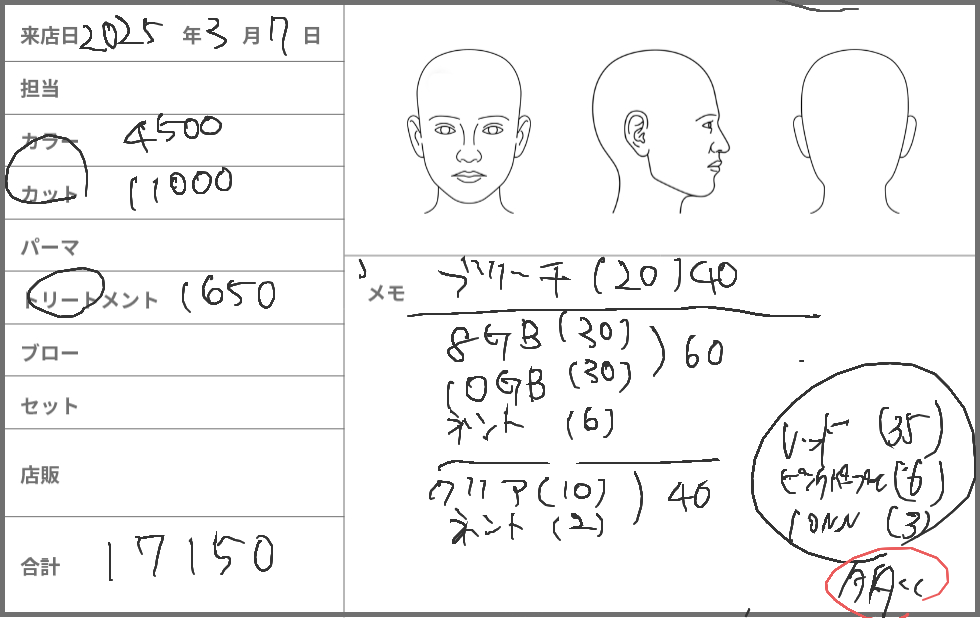 来店日 2025 年 3 月 7 日
担当
カラー 4500
カット 11000
パーマ
トリートメント 1650
ブロー
セット
店販
合計 17150
メモ
ブリーチ (20) 40
8GB (30)
10GB (30) ) 60
ネント (6)
クリア (10) ) 40
ネント (2)
レッド (35)
ピンクパープル (6)
10NN (3)